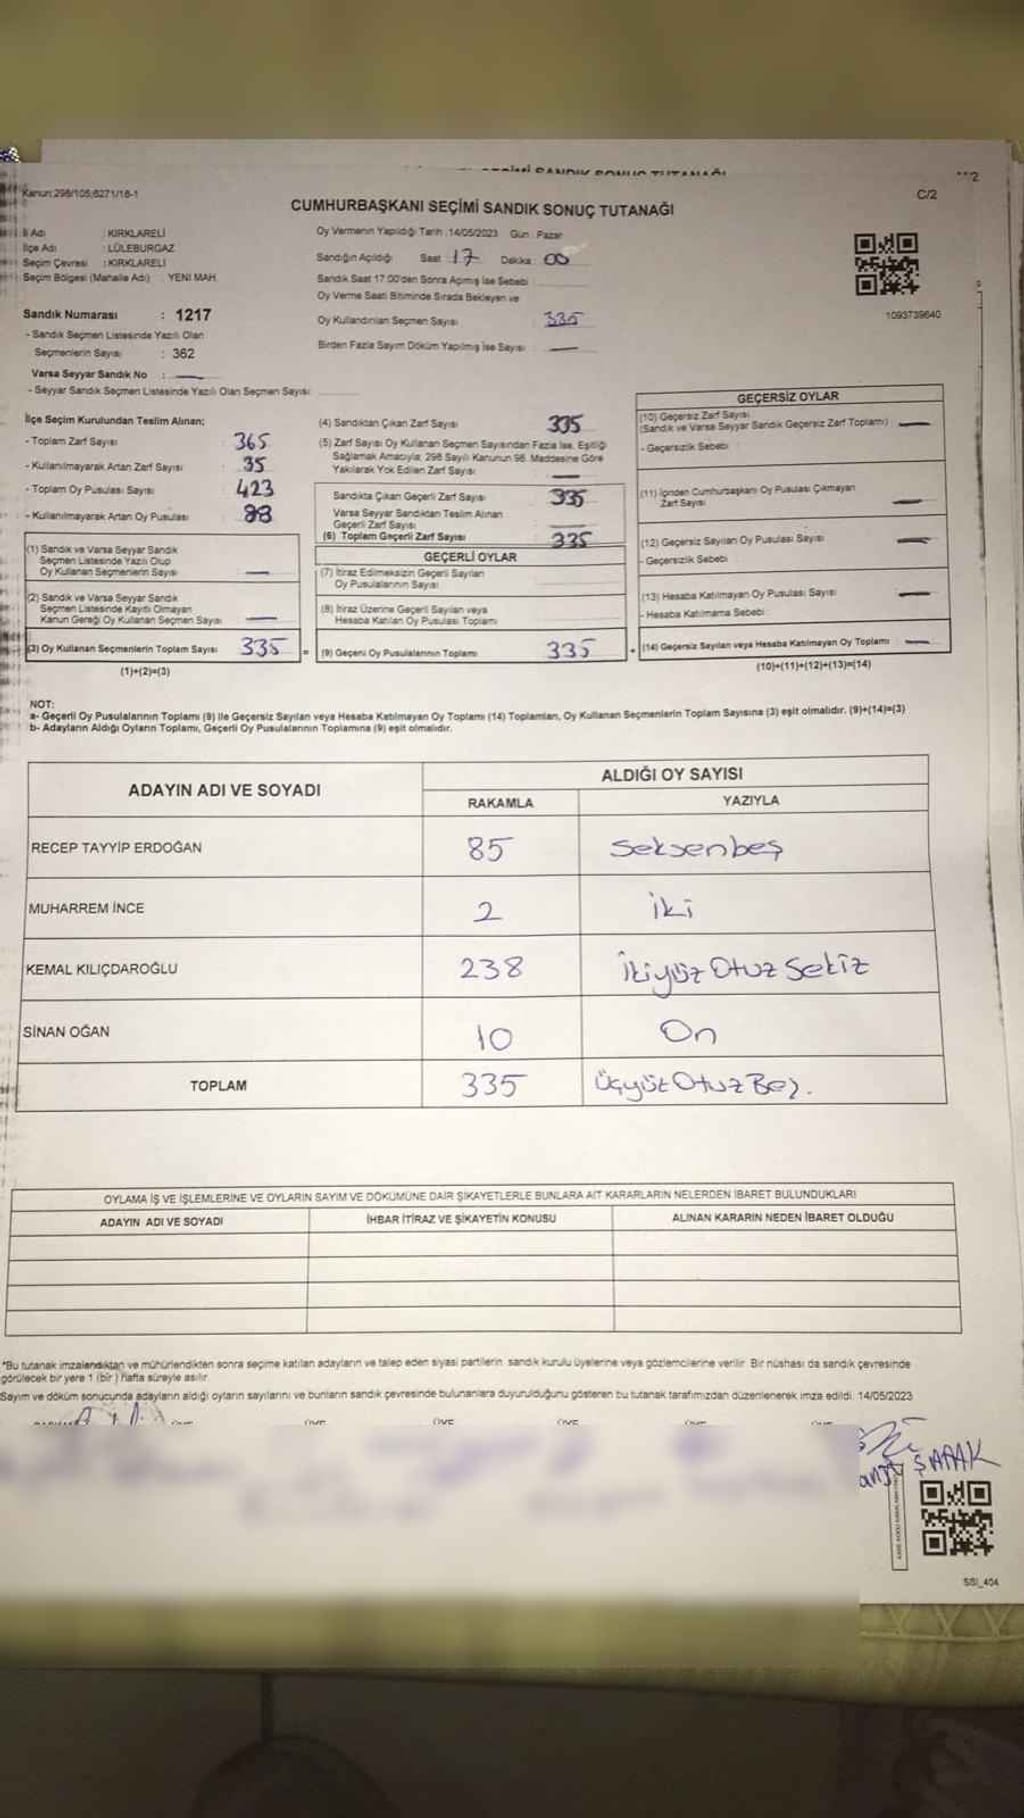 SEÇİMİ SANDIK SONUÇ TUTANAĞI
Kanun:298/105;6271/18-1
C/2
CUMHURBAŞKANI SEÇİMİ SANDIK SONUÇ TUTANAĞI
İl Adı : KIRKLARELİ
İlçe Adı : LÜLEBURGAZ
Seçim Çevresi : KIRKLARELİ
Seçim Bölgesi (Mahalle Adı) : YENİ MAH.
Sandık Numarası : 1217
- Sandık Seçmen Listesinde Yazılı Olan
Seçmenlerin Sayısı : 362
Varsa Seyyar Sandık No : —
- Seyyar Sandık Seçmen Listesinde Yazılı Olan Seçmen Sayısı :
Oy Vermenin Yapıldığı Tarih :14/05/2023 Gün : Pazar
Sandığın Açıldığı Saat : 17 Dakika : 00
Sandık Saat 17:00'den Sonra Açılmış İse Sebebi
Oy Verme Saati Bitiminde Sırada Bekleyen ve
Oy Kullandırılan Seçmen Sayısı 335
Birden Fazla Sayım Döküm Yapılmış İse Sayısı —
1093739640
İlçe Seçim Kurulundan Teslim Alınan;
- Toplam Zarf Sayısı : 365
- Kullanılmayarak Artan Zarf Sayısı : 35
- Toplam Oy Pusulası Sayısı : 423
- Kullanılmayarak Artan Oy Pusulası : 88
(1) Sandık ve Varsa Seyyar Sandık
Seçmen Listesinde Yazılı Olup
Oy Kullanan Seçmenlerin Sayısı —
(2) Sandık ve Varsa Seyyar Sandık
Seçmen Listesinde Kayıtlı Olmayan
Kanun Gereği Oy Kullanan Seçmen Sayısı —
(3) Oy Kullanan Seçmenlerin Toplam Sayısı 335
(1)+(2)=(3)
(4) Sandıktan Çıkan Zarf Sayısı 335
(5) Zarf Sayısı Oy Kullanan Seçmen Sayısından Fazla İse, Eşitliği
Sağlamak Amacıyla; 298 Sayılı Kanunun 98. Maddesine Göre
Yakılarak Yok Edilen Zarf Sayısı —
Sandıkta Çıkan Geçerli Zarf Sayısı 335
Varsa Seyyar Sandıktan Teslim Alınan
Geçerli Zarf Sayısı
(6) Toplam Geçerli Zarf Sayısı 335
GEÇERLİ OYLAR
(7) İtiraz Edilmeksizin Geçerli Sayılan
Oy Pusulalarının Sayısı
(8) İtiraz Üzerine Geçerli Sayılan veya
Hesaba Katılan Oy Pusulası Toplamı
= (9) Geçerli Oy Pusulalarının Toplamı 335
GEÇERSİZ OYLAR
(10) Geçersiz Zarf Sayısı
(Sandık ve Varsa Seyyar Sandık Geçersiz Zarf Toplamı) : —
- Geçersizlik Sebebi
(11) İçinden Cumhurbaşkanı Oy Pusulası Çıkmayan
Zarf Sayısı —
(12) Geçersiz Sayılan Oy Pusulası Sayısı —
- Geçersizlik Sebebi
(13) Hesaba Katılmayan Oy Pusulası Sayısı —
- Hesaba Katılmama Sebebi
+ (14) Geçersiz Sayılan veya Hesaba Katılmayan Oy Toplamı —
(10)+(11)+(12)+(13)=(14)
NOT:
a- Geçerli Oy Pusulalarının Toplamı (9) ile Geçersiz Sayılan veya Hesaba Katılmayan Oy Toplamı (14) Toplamları, Oy Kullanan Seçmenlerin Toplam Sayısına (3) eşit olmalıdır. (9)+(14)=(3)
b- Adayların Aldığı Oyların Toplamı, Geçerli Oy Pusulalarının Toplamına (9) eşit olmalıdır.
ADAYIN ADI VE SOYADI ALDIĞI OY SAYISI
RAKAMLA YAZIYLA
RECEP TAYYİP ERDOĞAN 85 Seksenbeş
MUHARREM İNCE 2 İki
KEMAL KILIÇDAROĞLU 238 İkiyüz Otuz Sekiz
SİNAN OĞAN 10 On
TOPLAM 335 Üçyüz Otuz Beş.
OYLAMA İŞ VE İŞLEMLERİNE VE OYLARIN SAYIM VE DÖKÜMÜNE DAİR ŞİKAYETLERLE BUNLARA AİT KARARLARIN NELERDEN İBARET BULUNDUKLARI
ADAYIN ADI VE SOYADI İHBAR İTİRAZ VE ŞİKAYETİN KONUSU ALINAN KARARIN NEDEN İBARET OLDUĞU
*Bu tutanak imzalandıktan ve mühürlendikten sonra seçime katılan adayların ve talep eden siyasi partilerin sandık kurulu üyelerine veya gözlemcilerine verilir. Bir nüshası da sandık çevresinde
görülecek bir yere 1 (bir ) hafta süreyle asılır.
Sayım ve döküm sonucunda adayların aldığı oyların sayılarını ve bunların sandık çevresinde bulunanlara duyurulduğunu gösteren bu tutanak tarafımızdan düzenlenerek imza edildi. 14/05/2023
ÜYE ÜYE ÜYE ÜYE ÜYE
SSI_404